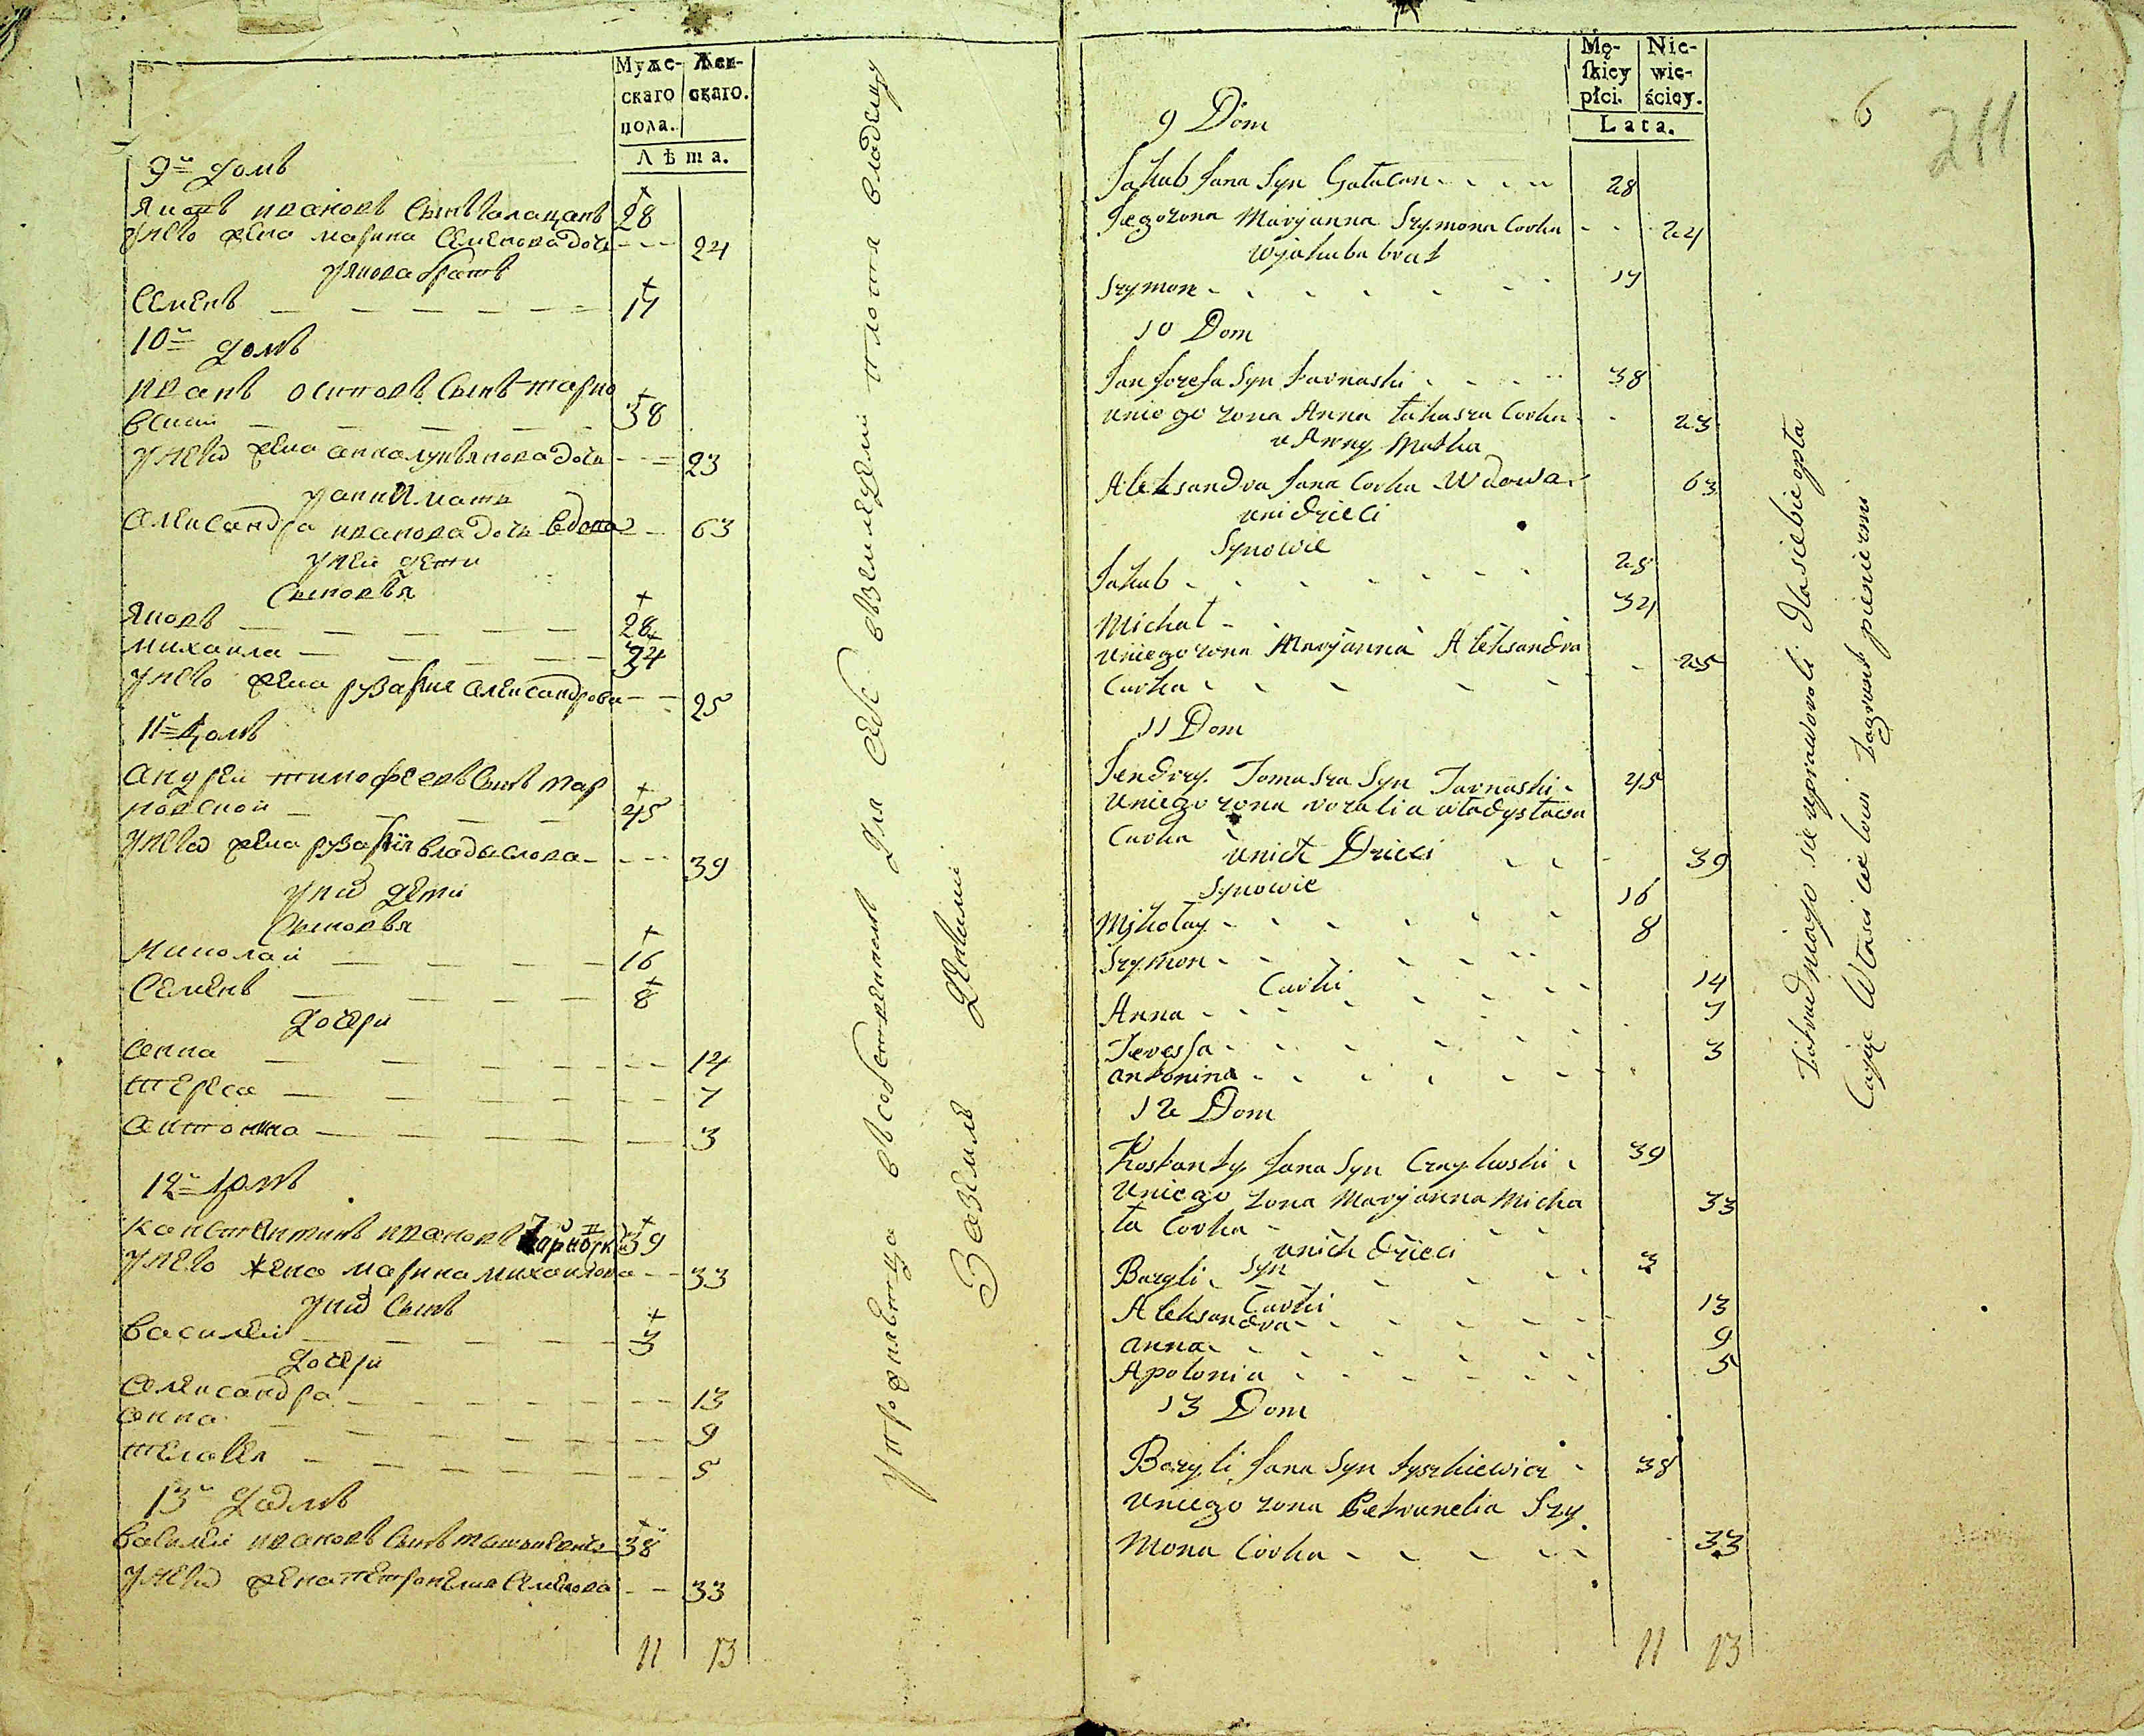 Муже-
скаго
пола.
Жен-
скаго.
Лѣта.
9й домъ
Яковъ ивановъ сынъ Галацанъ 28
унево жена марина семенова дочь 24
уякова братъ
Семенъ 17
10й домъ
иванъ осиповъ сынъ тарно
вский 38
унево жена анна лукьянова дочь 23
уанны мать
александра иванова дочь вдова 63
уней дети
Сыновья
Яковъ 28
михаила 34
унево жена рузалия александрова 25
11й домъ
андрей тимофеевъ сынъ тар
новской 45
унево жена рузалия владыслова 39
уних дети
Сыновья
Николай 16
Семенъ 8
дочери
анна 14
тереса 7
антонина 3
12й домъ
константинъ ивановъ 39
унево жена марина михаилова 33
уних сынъ
василей 3
дочери
александра 13
анна 9
5
13й домъ
василей ивановъ сынъ тышкевичь 38
унево жена петронелия семенова 33
11 13
упражняютца въ собственномъ для себе въземледелии плотя владельцу
Заземлю деньгами
Mę-
ſkiey
płci.
Nie-
wie-
ściey.
Lata.
6
211
9 Dom
Jakub Jana Syn Gałacan 28
Jego zona Maryanna Szymona Corka 24
u Jakuba brat
Szymon 17
10 Dom
Jan Jozefa Syn Tarnaski 38
uniego zona Anna Łukasza Corka 23
u Anny Matka
Aleksandra Jana Corka Wdowa 63
uni dzieci
Synowie
Jakub 28
Michał 34
uniego zona Maryanna Aleksandra
Curka 25
11 Dom
Jendrzy Tomasza Syn Tarnaski 45
uniego zona rozalia władysława
Curka 39
unich Dzieci
Synowie
Mikołay 16
Szymon 8
Curki
Anna 14
Teressa 7
antonina 3
12 Dom
Kostanty Jana Syn Czaykoski 39
Uniego zona Maryanna Micha
ła Corka 33
unich dzieci
Syn
Bazyli 3
Curki
Aleksandra 13
anna 9
Apolonia 5
13 Dom
Bazyli Jana Syn Tyszkiewicz 38
Uniego zona Petrunelia Szy
Mona Corka 33
11 13
Zatrudniajo sie uprawo roli Dla siebie opła
Cając Właścicielowi Zagrunt pieniezmi